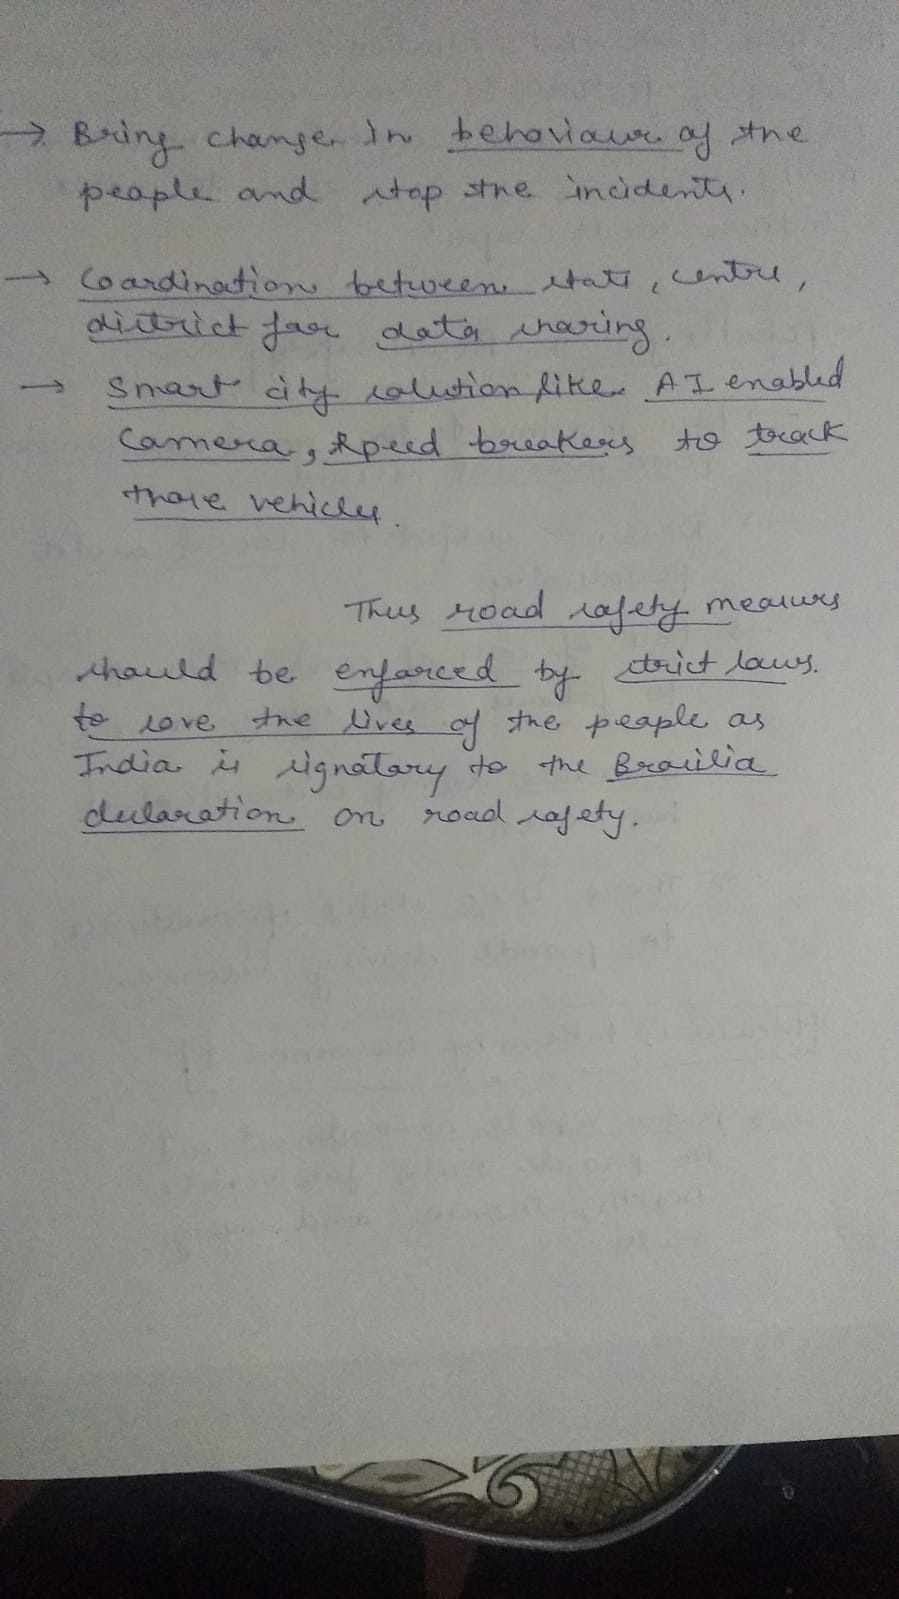 → Bring change in behaviour of the
people and stop the incidents.
→ Coordination between state, centre,
district for data sharing.
→ Smart city solution like AI enabled
Camera, speed breakers to track
those vehicles.
Thus road safety measures
should be enforced by strict laws.
to save the lives of the people as
India is signatory to the Brasilia
declaration on road safety.